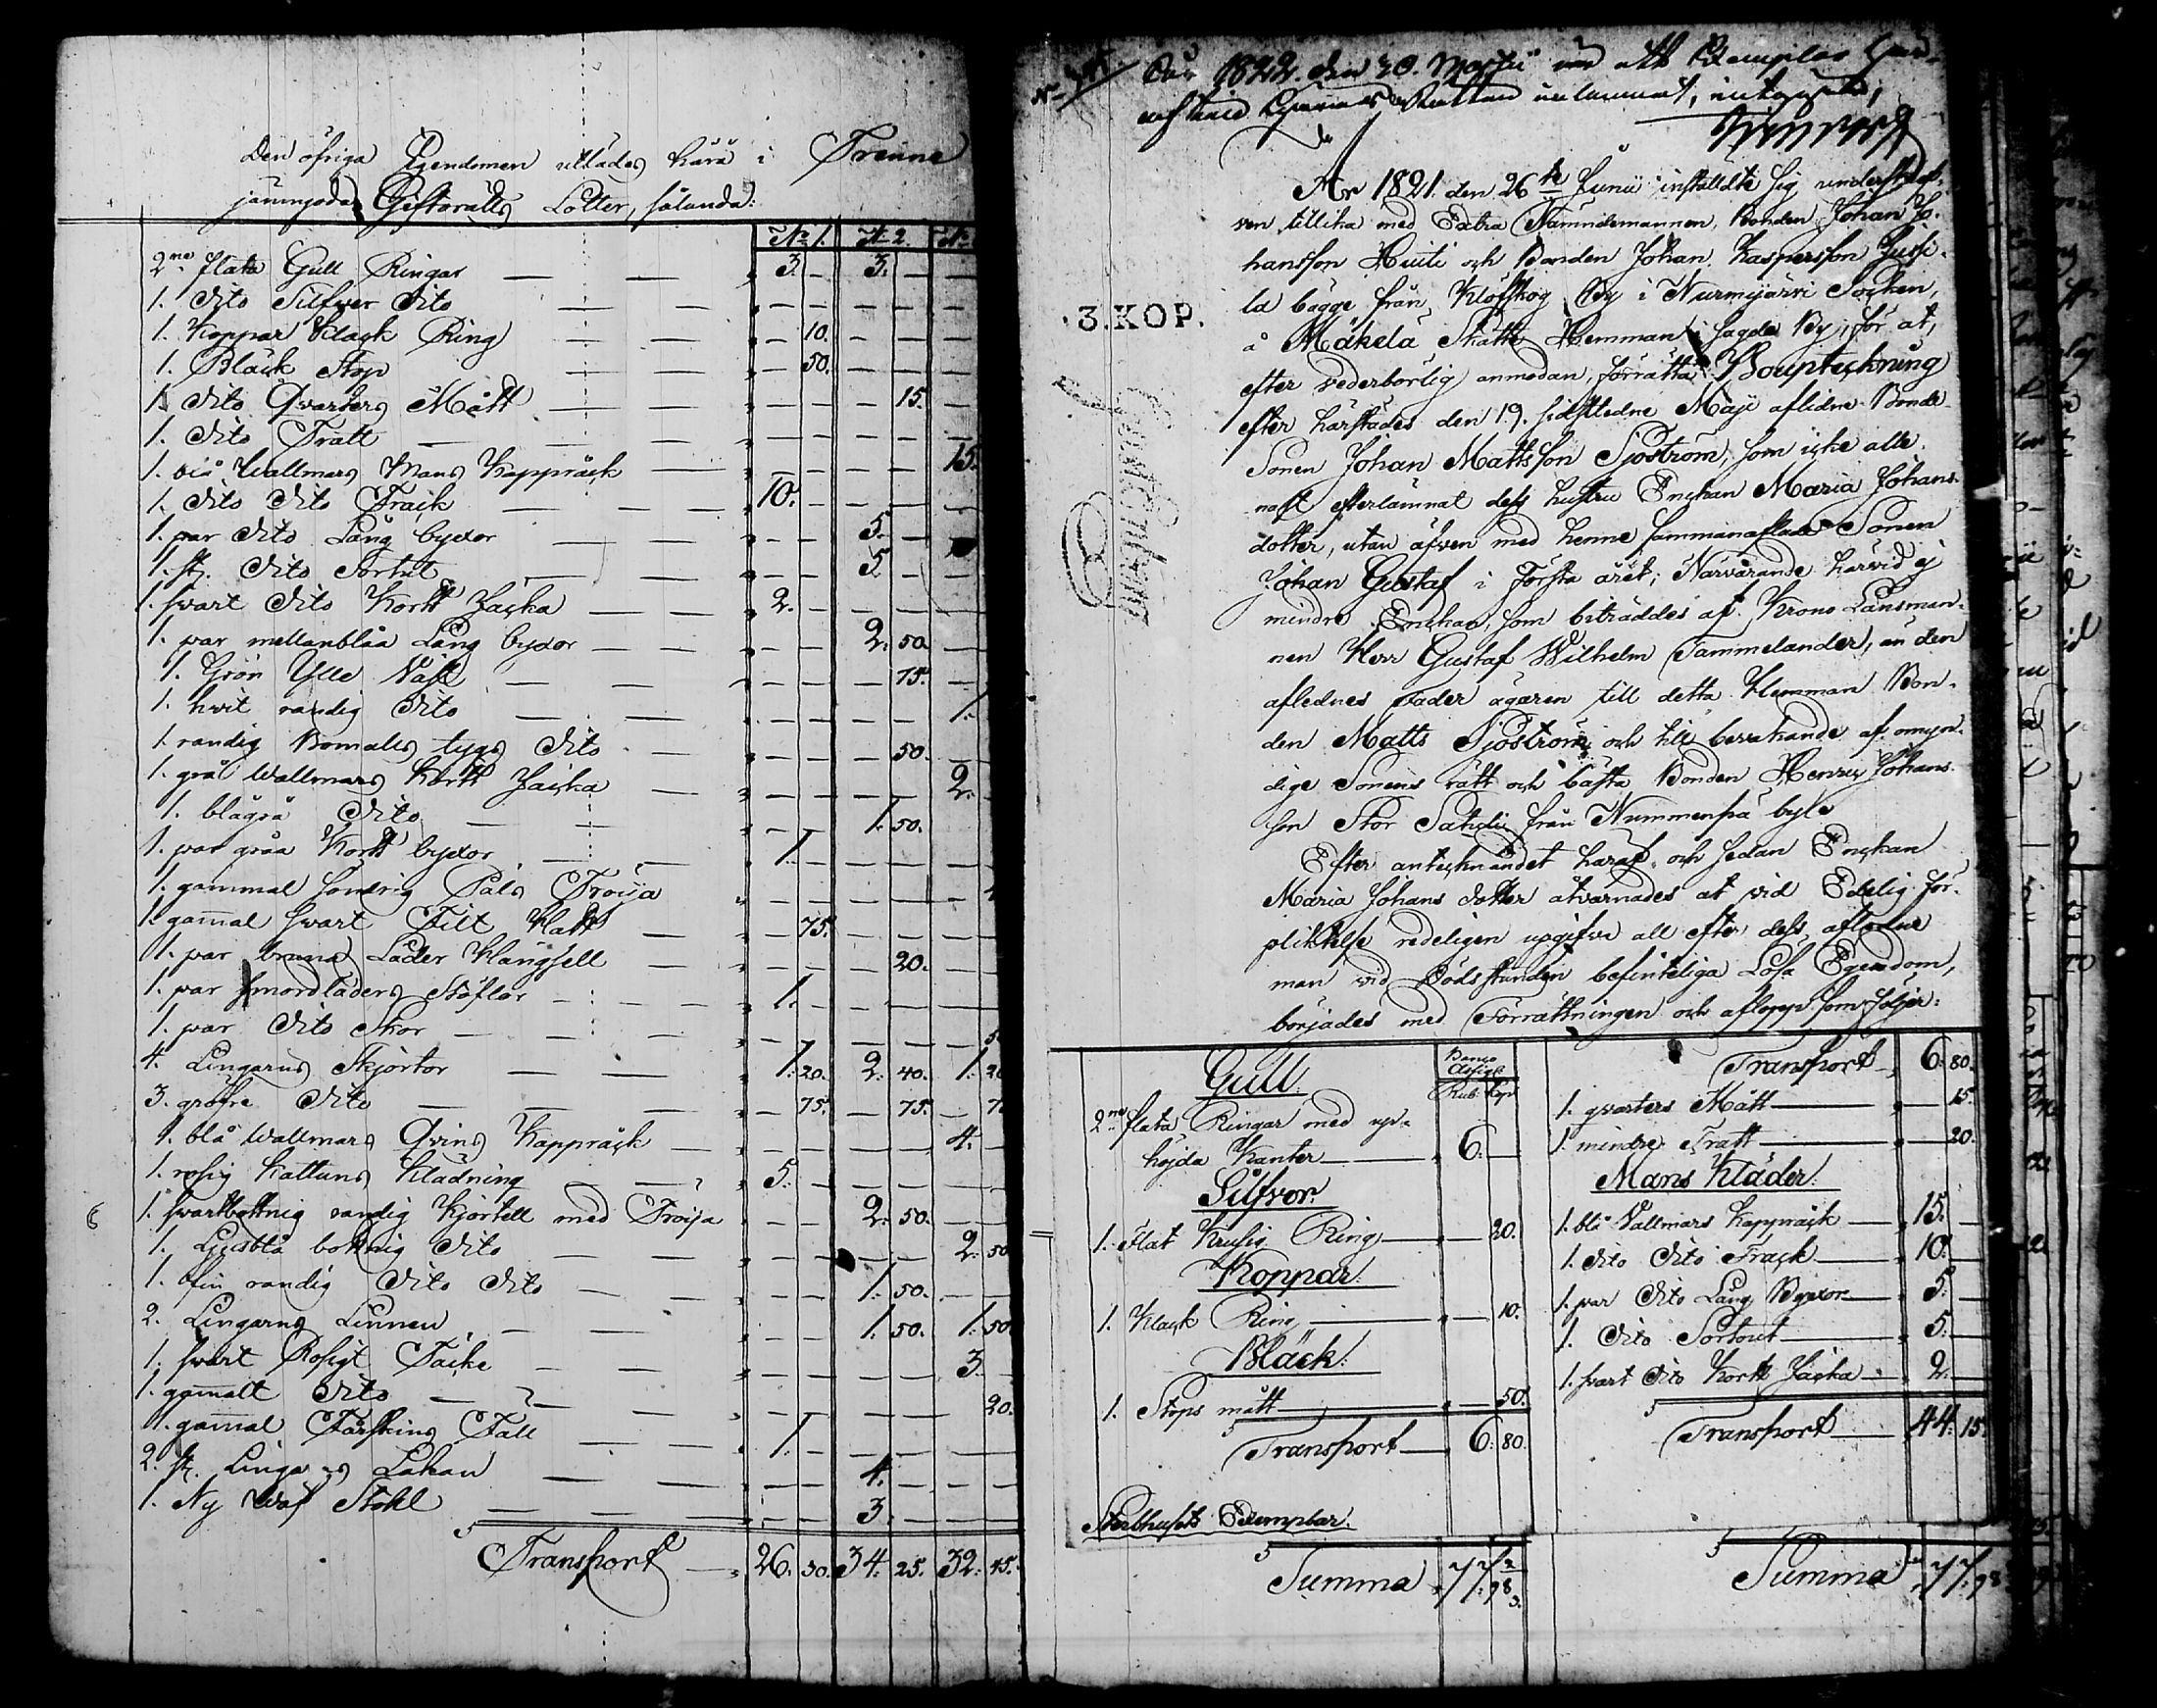 Den öfriga Egendomen utlades härå i Trenne
jämngoda Giftorätts Lotter, sålunda:
No 1. N. 2. No
2ne flata Gull Ringar — — " 3. — 3. — —
1. dito Silfwer dito — — " — — — — —
1. Koppar Klack Ring — — " — 10. — — —
1. Bläck Stop — — " — 50. — — —
1. dito Qvarters Mått — — " — — — 15. —
1. dito Tratt — — — " — — — — —
1. blå Wallmars Mans Kappråck — " — — — — 15.
1. dito dito Frack — — — 10. — — — —
1. par dito Lång byxor — — " — — 5. — —
1. st. dito Sortut — — " — — 5. — —
1. swart dito Kort Jacka — — " 2. — — — —
1. par mellanblåa Lång byxor — — " — — 2. 50. —
1. Grön Ylle Väst — — " — — — 75. —
1. hvit randig dito — — " — — — — 1.
1. randig Bomulls tygs dito — " — — — 50. —
1. grå Wallmars Kort Jacka — " — — — — 2.
1. blågrå dito — — " — — 1. 50.
1. par gråa Kort byxor — — " 1. — — — —
1. gammal söndrig Päls Tröija " — — — —
1. gam̄al swart Filt Hatt — " — 75. — — —
1. par bruna Läder Hängsell — " — — — 20. —
1. par smordläders Stöflor — — " 1. — — — —
1. par dito Skor — — — " — — — —
4. Lingarns Skjortor — — " 1. 20. 2. 40. 1. 20
3. gröfre dito — — — " — 75. — 75. — 7
1. blå Wallmars Qvins Kappråck — " — — — — 4.
1. rosig Kattuns Klädning — — " 5. — — — —
1. swartbottnig randig Kjortell med Tröija " — — 2. 50. —
1. Ljusblå bottnig dito — — " — — — — 2. 50
1. fin randig dito dito — — " — — 1. 50. —
2. Lingarns Linnen — — " — — 1. 50. 1. 50
1. swart Rosigt Täcke — — " — — — — 3. —
1. gam̄alt dito — — — " — — — — 20.
1. gam̄al Fårskins Fäll — — " 1. — — — —
2. st. Lingarns Lakan — — " — — 4. — —
1. Ny Wäf Stohl — — — " — — 3. — —
Transport — " 26. 30. 34. 25. 32. 45.
År 1822. den 30. Martii ett Exemplar
inlemnat, intygas,
År 1821. den 26te Junii instäldte sig underskref-
ven, tillika med Extra Nämndemannen, Bonden Johan Jo-
hansson Huiti och Bonden Johan Kaspersson Jussi-
la bägge från Klöfskog By i Nurmijärvi Socken,
å Mäkelä Skatte Hemman i sagde By, för at,
3. KOP.
efter vederbörlig anmodan, förrätta Bouptekning
efter härstädes den 19. sidstledne Maji aflidne Bonde
Sonen Johan Mattsson Sjöström, som icke alle
nast efterlämnat dess hustru Enckan Maria Johans-
dotter, utan äfwen med henne sammanaflade Sonen
Johan Gustaf i första året; Närvarande härvid ej
mindre Enckan, som biträddes af Krono Länsman-
nen Herr Gustaf Wilhelm Tammelander, än den
aflednes Fader ägaren till detta Hemman Bon-
den Matts Sjöström och till bevakande af omyn-
dige Sonens rätt och bästa Bonden Henric Johans-
son Stor från Nummenpä byle
Efter antecknandet häraf och sedan Enckan
Maria Johans dotter åtvarnades at vid Edelig för-
pliktelse redeligen upgifva all efter dess aflidne
man vid Dödsstunden befinteliga Lösa Egendom,
börjades med Förrättningen och aflopp som följer:
Gull. Banco Assign Rub: Kop.
2ne flata Ringar med up-
höjda Kanter — " 6. —
Silfver.
1. Flat Krusig Ring — " — 20.
Koppar.
1. Klack Ring — " — 10.
Bläck.
1. Stops mått — " — 50.
Transport — " 6. 80.
Sterbhusets Exemplar.
Transport — " 6. 80.
1. qvarters Mått — " — 15.
1. mindre Tratt — " — 20.
Mans Kläder.
1. blå Vallmars Kappråck — " 15. —
1. dito dito Frack — " 10. —
1. par dito Lång Byxor — " 5. —
1. dito Sortout — " 5. —
1. svart dito Kort Jacka — " 2. —
Transport — 44. 15
Summa 77. 98
Summa 77. 98